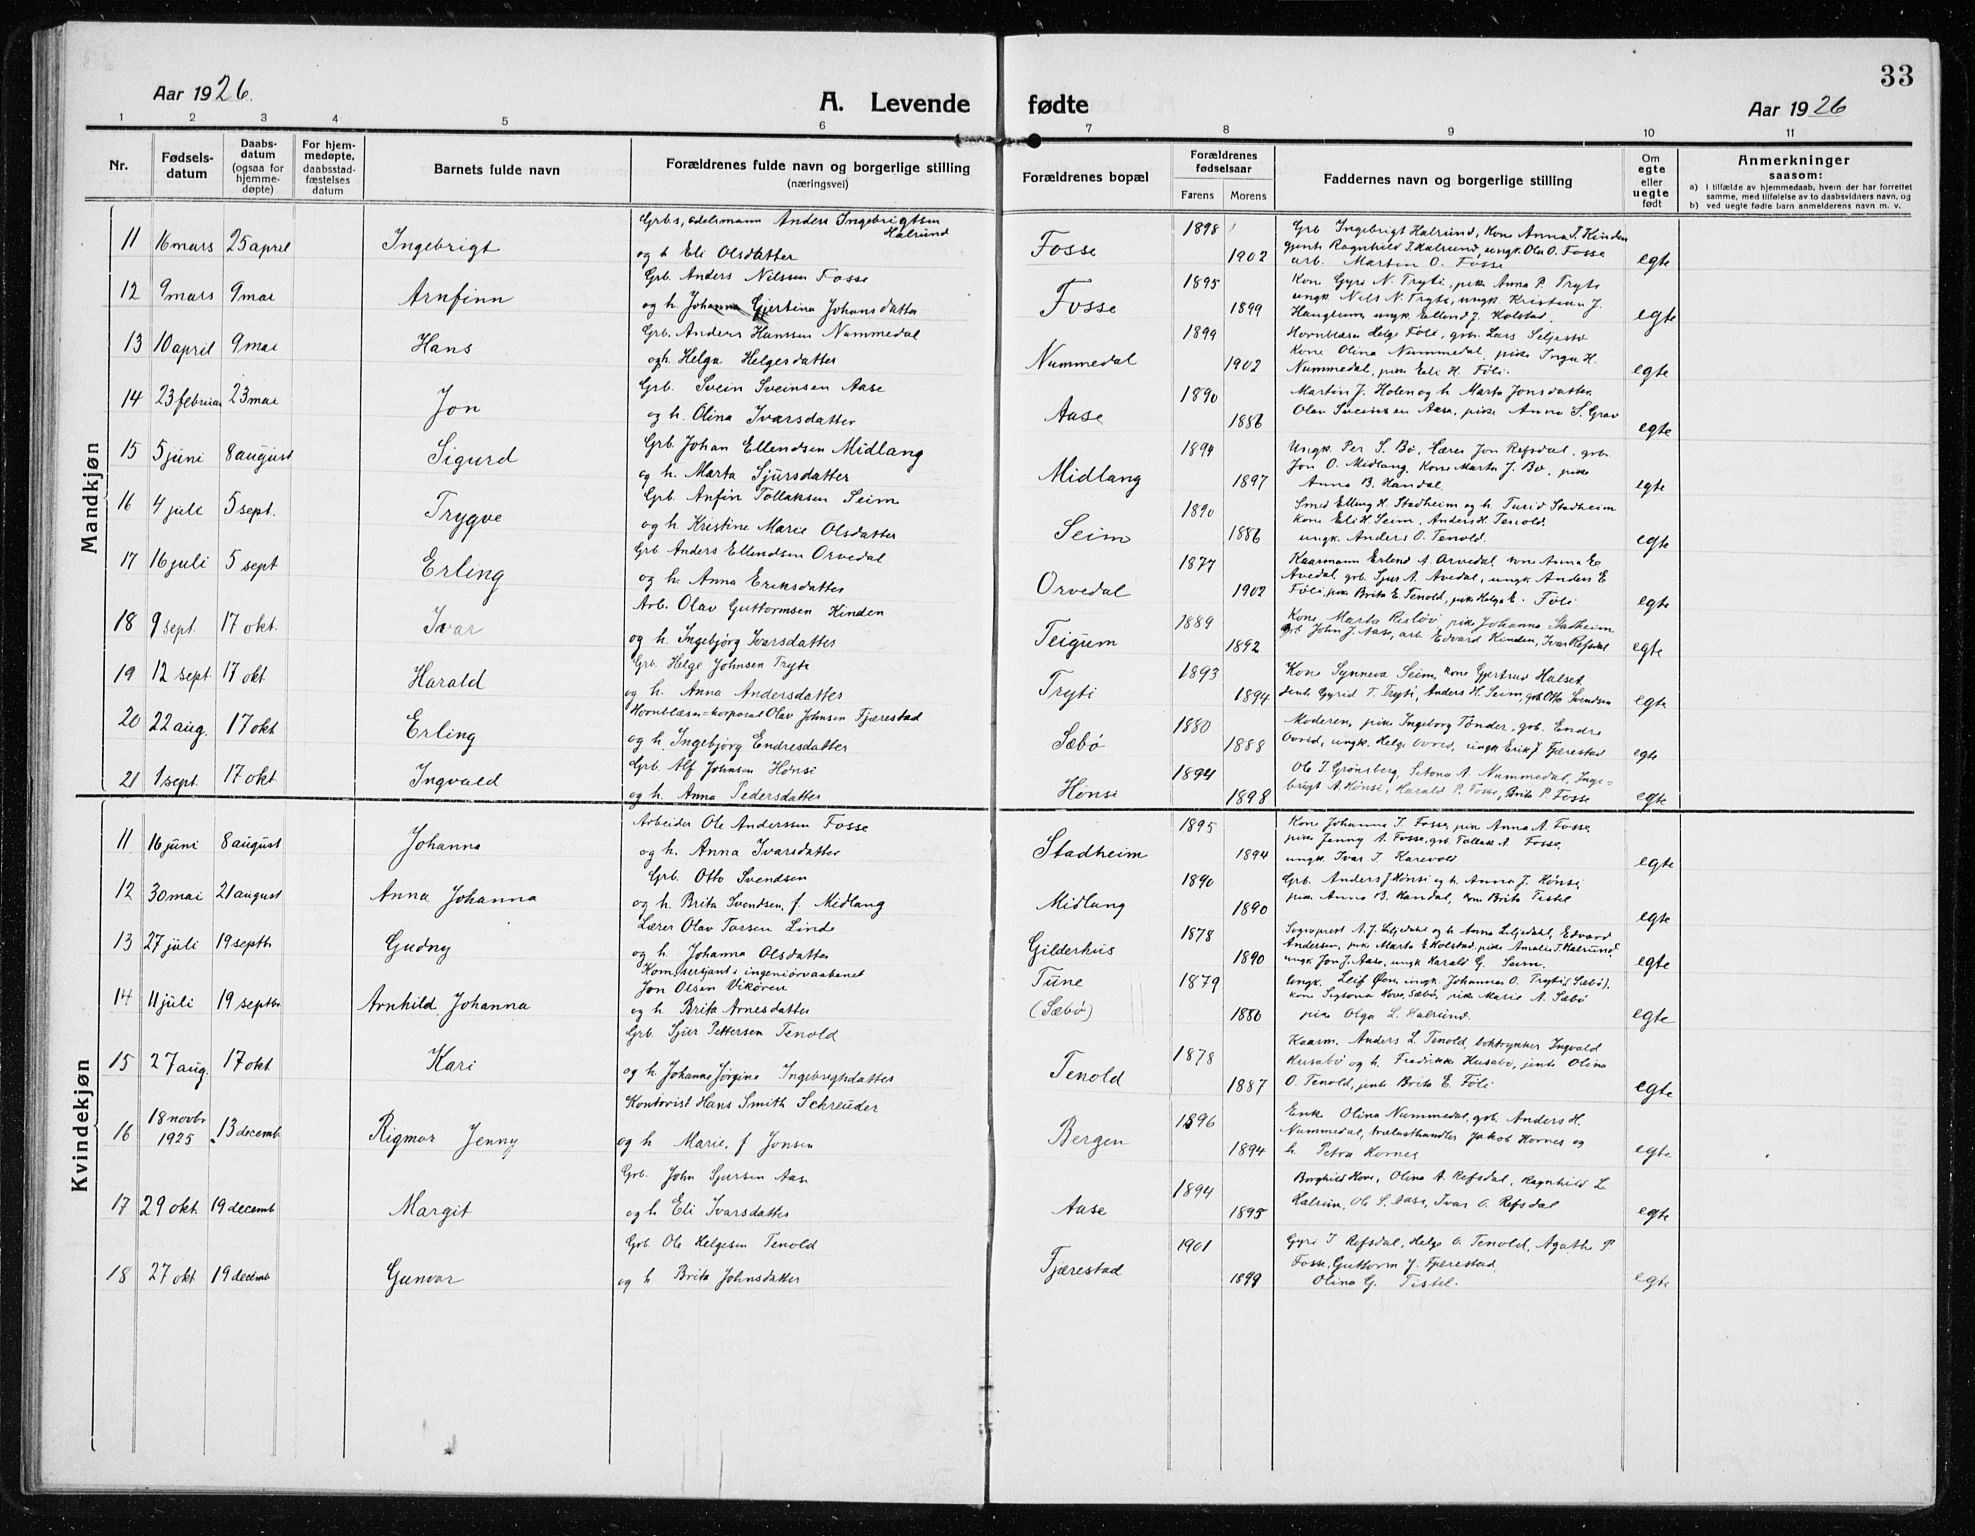 33
Aar 1926.
A. Levende fødte
Aar 1926
1 2 3 4 5 6 7 8 9 10 11
Nr.
Fødsels-
datum
Daabs-
datum
(ogsaa for
hjemme-
døpte)
For hjem-
medøpte,
daabsstad-
fæstelses
datum
Barnets fulde navn
Forældrenes fulde navn og borgerlige stilling
(næringsvei)
Forældrenes bopæl
Forældrenes
fødselsaar
Farens Morens
Faddernes navn og borgerlige stilling
Om
egte
eller
uegte
født
Anmerkninger
saasom:
a) i tilfælde av hjemmedaab, hvem der har forrettet
samme, med tilføielse av to daabsvidners navn, og
b) ved uegte fødte barn anmelderens navn m. v.
Mandkjøn
11 16 mars 25 april Ingebrigt
Grbs, odelsmann Anders Ingebrigtsen
Halrund
og h Eli Olsdatter
Fosse 1898 1902
Grb Ingebrigt Halrund, Kone Anna I. Hinden
gjent. Ragnhild I. Halrund, ungk. Ola O. Fosse
arb. Martin O. Fosse
egte
12 9 mars 9 mai Arnfinn
Grb. Anders Nilssen Fosse
og h. Johanna Gjertina Johansdatter
Fosse 1895 1899
Kone Gyro N. Tryti, pike Anna P. Tryti
ungk. Nils N. Tryti, ungk. Kristian J.
Haugtun, ungk. Ellend J. Holstad.
egte
13 10 april 9 mai Hans
Grb. Anders Hanssen Nummedal
og h. Helga Helgesdatter
Nummedal 1899 1902
Hornblæser Helge Føli, grb. Lars Seljestø
Kone Olina Nummedal, pike Inga H.
Nummedal, pike Eli H. Føli.
egte
14 23 februar 23 mai Jon
Grb. Svein Sveinsen Aase
og h. Olina Ivarsdatter
Aase 1890 1886
Martin J. Holen og h. Marta Jonsdatter.
Olav Sveinsen Aase, pike Anna S. Grav
egte
15 5 juni 8 august Sigurd
Grb. Johan Ellendsen Midlang
og h. Marta Sjursdatter
Midlang 1894 1897
Ungk. Per S. Bø, Lærer Jon Refsdal, grb.
Jon O. Midlang, Kone Marta J. Bø, pike
Anna B. Handal.
egte
16 4 juli 5 sept. Trygve
Grb. Anfin Tollaksen Seim
og h. Kristine Marie Olsdatter
Seim 1890 1886
Smed Elling H. Stadheim og h. Turid Stadheim
kone Eli H. Seim, Anders H. Tenold.
ungk. Anders O. Tenold.
egte
17 16 juli 5 sept Erling
Grb Anders Ellendsen Orvedal
og h. Anna Eriksdatter
Orvedal 1877 1902
Kaarmann Erlend A. Orvedal, kone Anna E
Avedal, grb. Sjur A. Avedal, ungk Anders E
Føli, pike Brita E. Tenold, pike Helga E. Føli.
egte
18 9 sept. 17 okt. Ivar
Arb. Olav Guttormsen Hinden
og h. Ingebjørg Ivarsdatter
Teigum 1889 1892
Kone, Marta Risløv, pike Johanna Stadheim
grb. John J. Aase, arb. Edvard Hinden, Ivar Refsdal
egte
19 12 sept. 17 okt. Harald
Grb. Helge Johnsen Tryti
og h. Anna Andersdatter
Tryti 1893 1894
Kone Synneva Seim, kone Gjertrud Halset
jente Gyrid T. Tryti, Anders H. Seim, grb. Otto Svendsen
egte
20 22 aug. 17 okt Erling
Hornblæser=korporal Olav Johnsen Fjærestad
og h. Ingebjørg Endresdatter
Sæbø 1880 1888
Moderen, pike Ingeborg Tønder, grb. Endre
Ovrid, ungk. Helge Ovrid, ungk Erik J Fjærestad
egte
21 1 sept. 17 okt. Ingvald
Grb. Alf Johnsen Hønsi
og h. Anna Pedersdatter
Hønsi 1894 1898
Ole T. Grønsberg, Sitona A. Nummedal, Inge=
brigt A. Hønsi, Harald P. Fosse, Brita P. Fosse
egte
Kvindekjøn
11 16 juni 8 august Johanna
Arbeider Ole Anderssen Fosse
og h. Anna Ivarsdatter
Stadheim 1895 1894
Kone Johanna T. Fosse, pike Anna A. Fosse,
pike Jenny A. Fosse, grb. Tollak A. Fosse,
ungk. Ivar T. Karevold
egte
12 30 mai 21 august Anna Johanna
Grb. Otto Svendsen
og h. Brita Svendsen, f. Midlang
Midlang 1890 1890
Grb. Anders J Hønsi og h. Anna J. Hønsi,
pike Anna B. Handal, kone Brita Tistel
egte
13 27 juli 19 septbr Gudny
Lærer Olav Tarsen Linde
og h. Johanna Olsdatter
Gilderhus 1878 1890
Sogneprest A. J. Liljedahl og h Anna Liljedahl, Edvard
Andersen, pike Marta E Holstad, pike Amalie I. Halrund,
ungk Jon J. Aase, ungk Harald G. Seim.
egte
14 11 juli 19 septbr Arnhild Johanna
Kom. sersjant i ingeniørvaabenet
Jon Olsen Vikøren
og h. Brita Arnesdatter
Tune
(Sæbø) 1879 1880
Ungk. Leif Øen, ungk. Johannes O. Tryti (Sæbø),
kone Sigtona Hove, Sæbø, pike Marie A. Sæbø
pike Olga L. Halrund.
egte
15 27 aug. 17 okt Kari
Grb. Sjur Pettersen Tenold
og h. Johanna Jørgine Ingebrigtsdatter
Tenold 1878 1887
Kaarm. Anders L. Tenold, boktrykker Ingvald
Husabø og h. Fredrikke Husabø, jente Olina
O. Tenold, jente Brita E. Føli
egte
16 18 novbr
1925 13 decemb Rigmor Jenny
Kontorist Hans Smith Schreuder
og h Marie, f Jonsen
Bergen 1896 1894
Enke Olina Nummedal, grb. Anders H.
Nummedal, trælasthandler Jakob Hornes og
h. Petra Hornes
egte
17 29 okt. 19 decemb Margit
Grb. John Sjursen Aase
og h Eli Ivarsdatter
Aase 1894 1895
Borghild Hove, Olina A. Refsdal, Ragnhild L.
Halrun, Ole S. Aase, Ivar O. Refsdal
egte
18 27 okt 19 decemb Gunvor
Grb. Ole Helgesen Tenold
og h Brita Johnsdatter
Fjærestad 1901 1899
Gyri I Refsdal, Helge O. Tenold, Agathe P
Fosse, Guttorm J. Fjærestad,
Olina G. Tistel.
egte